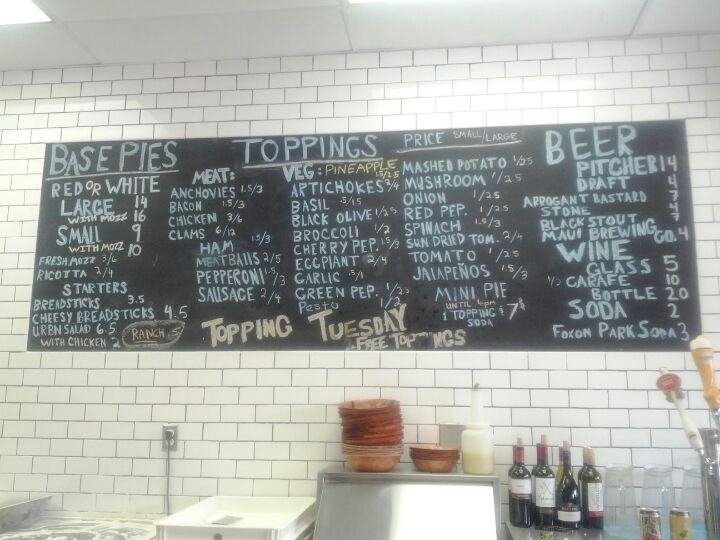 BASE PIES
RED OR WHITE
LARGE 14
WITH MOZZ 16
SMALL 9
WITH MOZZ 10
FRESH MOZZ 3/6
RICOTTA 2/4
STARTERS
BREADSTICKS 3.5
CHEESY BREADSTICKS 4.5
URBN SALAD 6.5
WITH CHICKEN 2
RANCH .5
TOPPINGS PRICE SMALL/LARGE
MEAT:
ANCHOVIES 1.5/3
BACON 1.5/3
CHICKEN 3/6
CLAMS 6/12
HAM 1.5/3
MEATBALLS 2/5
PEPPERONI 1.5/3
SAUSAGE 2/4
VEG: PINEAPPLE 1.5/2.5
ARTICHOKES 2/4
BASIL .5/1.5
BLACK OLIVE 1/2.5
BROCCOLI 1/2
CHERRY PEP. 1.5/3
EGGPLANT 2/4
GARLIC .5/1
GREEN PEP. 1/2.5
PESTO 1/2
MASHED POTATO 1/2.5
MUSHROOM 1/2.5
ONION 1/2.5
RED PEP. 1/2.5
SPINACH 1.5/3
SUN DRIED TOM. 2/4
TOMATO 1/2.5
JALAPEÑOS 1.5/3
MINI PIE
UNTIL 4PM
1 TOPPING & SODA 7
TOPPING TUESDAY
FREE TOPPINGS
BEER
PITCHER 14
DRAFT 4
ARROGANT BASTARD 7
STONE 4
BLACK STOUT 7
MAUI BREWING CO. 4
WINE
GLASS 5
1/2 CARAFE 10
BOTTLE 20
SODA 2
FOXON PARK SODA 3